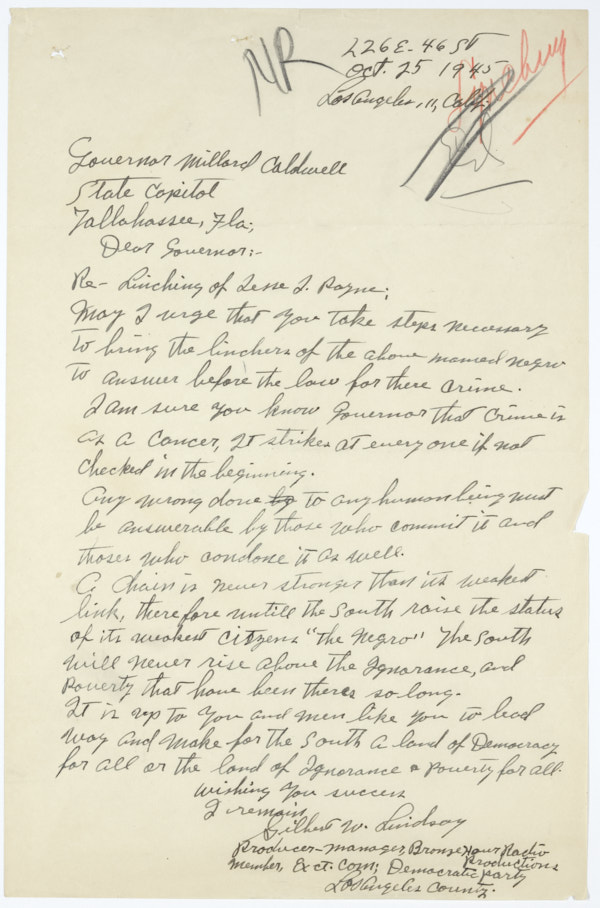 NR
226E-46 St
Oct. 25 1945
Los Angeles, 11, Calif.
Linching
Governor Millard Caldwell
State Capitol
Tallahassee, Fla;
Dear Governor:-
Re- Linching of Jesse J. Payne;
May I urge that you take steps necessary
to bring the linchers of the above named negro
to answer before the law for there crime.
I am sure you know Governor that crime is
as a cancer, It strikes at every one if not
checked in the beginning.
Any wrong done by to any human being must
be answerable by those who commit it and
those who condone it as well.
A chain is never stronger than its weakest
link, therefore untill the South raise the status
of its weakest citizens "the Negro" The South
will never rise above the Ignorance, and
Poverty that have been theres so long.
It is up to you and men like you to lead
way and make for the South a land of Democracy
for all or the land of Ignorance & Poverty for all.
Wishing you success
I remain
Gilbert W. Lindsay
Producer-Manager, Bronze Hour Radio
Productions
Member, Exct. Com; Democratic Party
Los Angeles County.